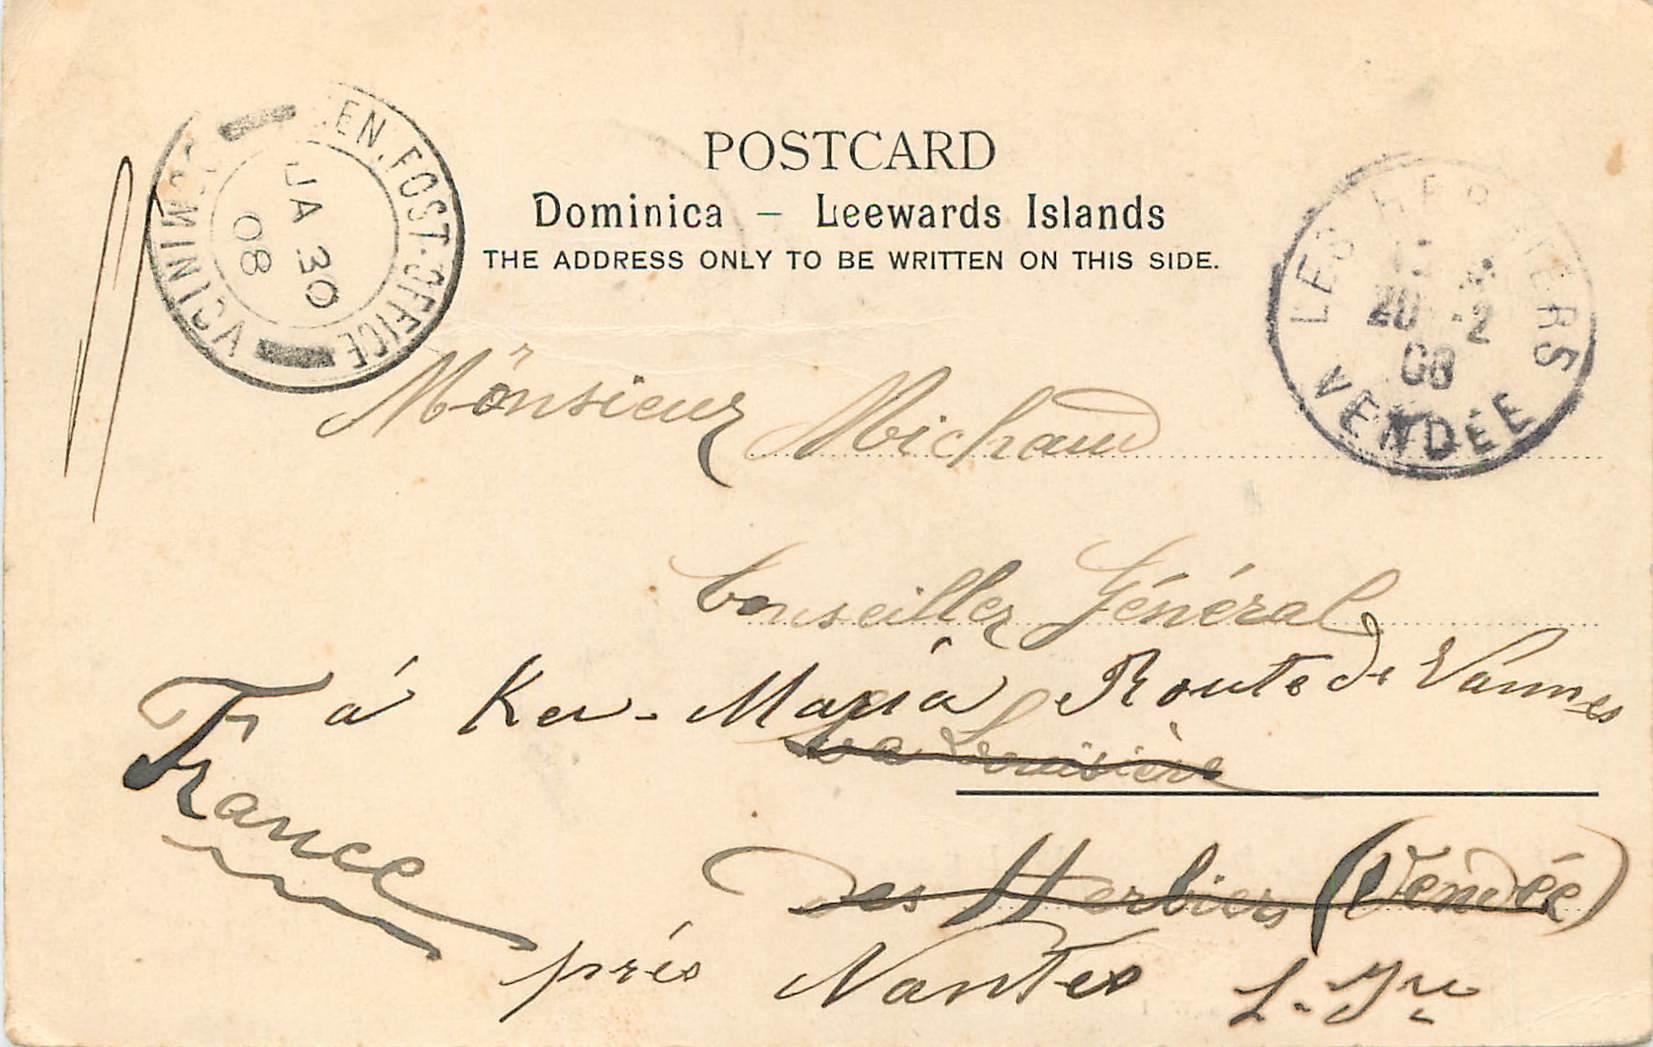 GEN. POST-OFFICE
DOMINICA
JA 30
08
POSTCARD
Dominica – Leewards Islands
THE ADDRESS ONLY TO BE WRITTEN ON THIS SIDE.
LES HERBIERS
20 -2
08
VENDÉE
Monsieur Michaud
Conseiller Général
à Ker-Maria Route de Vannes
La Louisière
Des Herbiers (Vendée)
France
près Nantes L-Inre